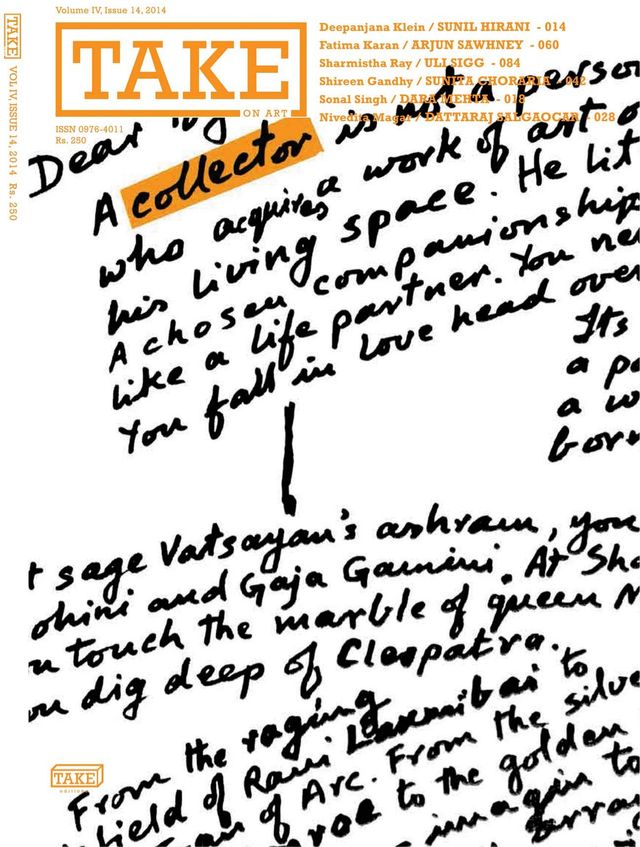 Volume IV, Issue 14, 2014
TAKE
ON ART
ISSN 0976-4011
Rs. 250
Deepanjana Klein / SUNIL HIRANI - 014
Fatima Karan / ARJUN SAWHNEY - 060
Sharmistha Ray / ULI SIGG - 084
Shireen Gandhy / SUNITA CHORARIA - 042
Sonal Singh / DARA MEHTA - 018
Nivedita Magar / DATTARAJ SALGAOCAR - 028
TAKE VOL IV, ISSUE 14, 2014 Rs. 250
Dear
A collector is not a person
who acquires a work of art
his living space. He lit
A chosen companionship
like a life partner. You ne
You fall in love head over
Its
a
a
born
t sage Vatsayan's ashram, you
ohini and Gaja Gamini. At Sha
u touch the marble of queen N
ou dig deep of Cleopatra.
From the raging
field of Rani Laxmibai to
of Arc. From the silve
to the golden
imagin to
TAKE
editions